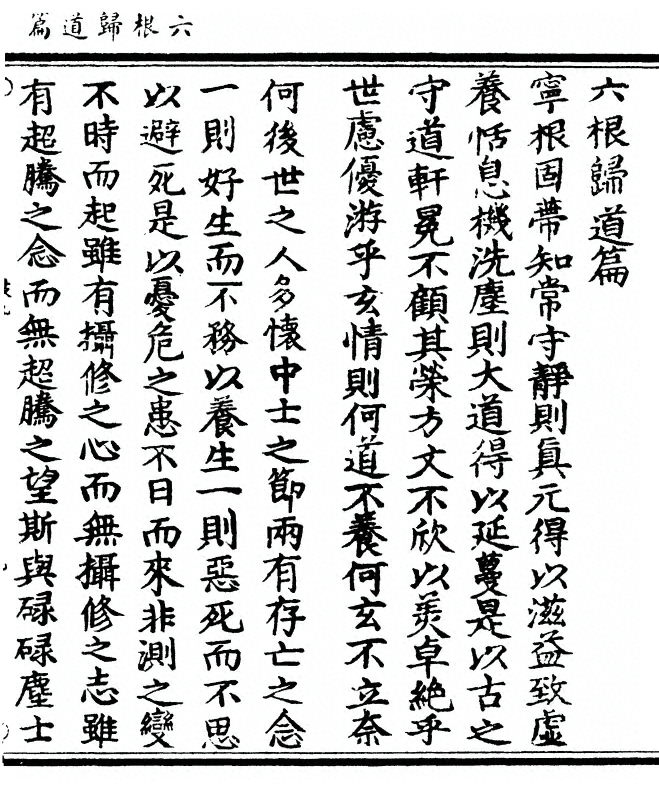 六根歸道篇
六根歸道篇
寧根固蔕知常守靜則眞元得以滋益致虛
養恬息機洗塵則大道得以延蔓是以古之
守道軒冕不顧其榮方文不欣以美卓絶乎
世慮優游乎玄情則何道不養何玄不立奈
何後世之人多懷中士之節兩有存亡之念
一則好生而不務以養生一則惡死而不思
以避死是以憂危之患不日而來非測之變
不時而起雖有攝修之心而無攝修之志雖
有超騰之念而無超騰之望斯與碌碌塵士